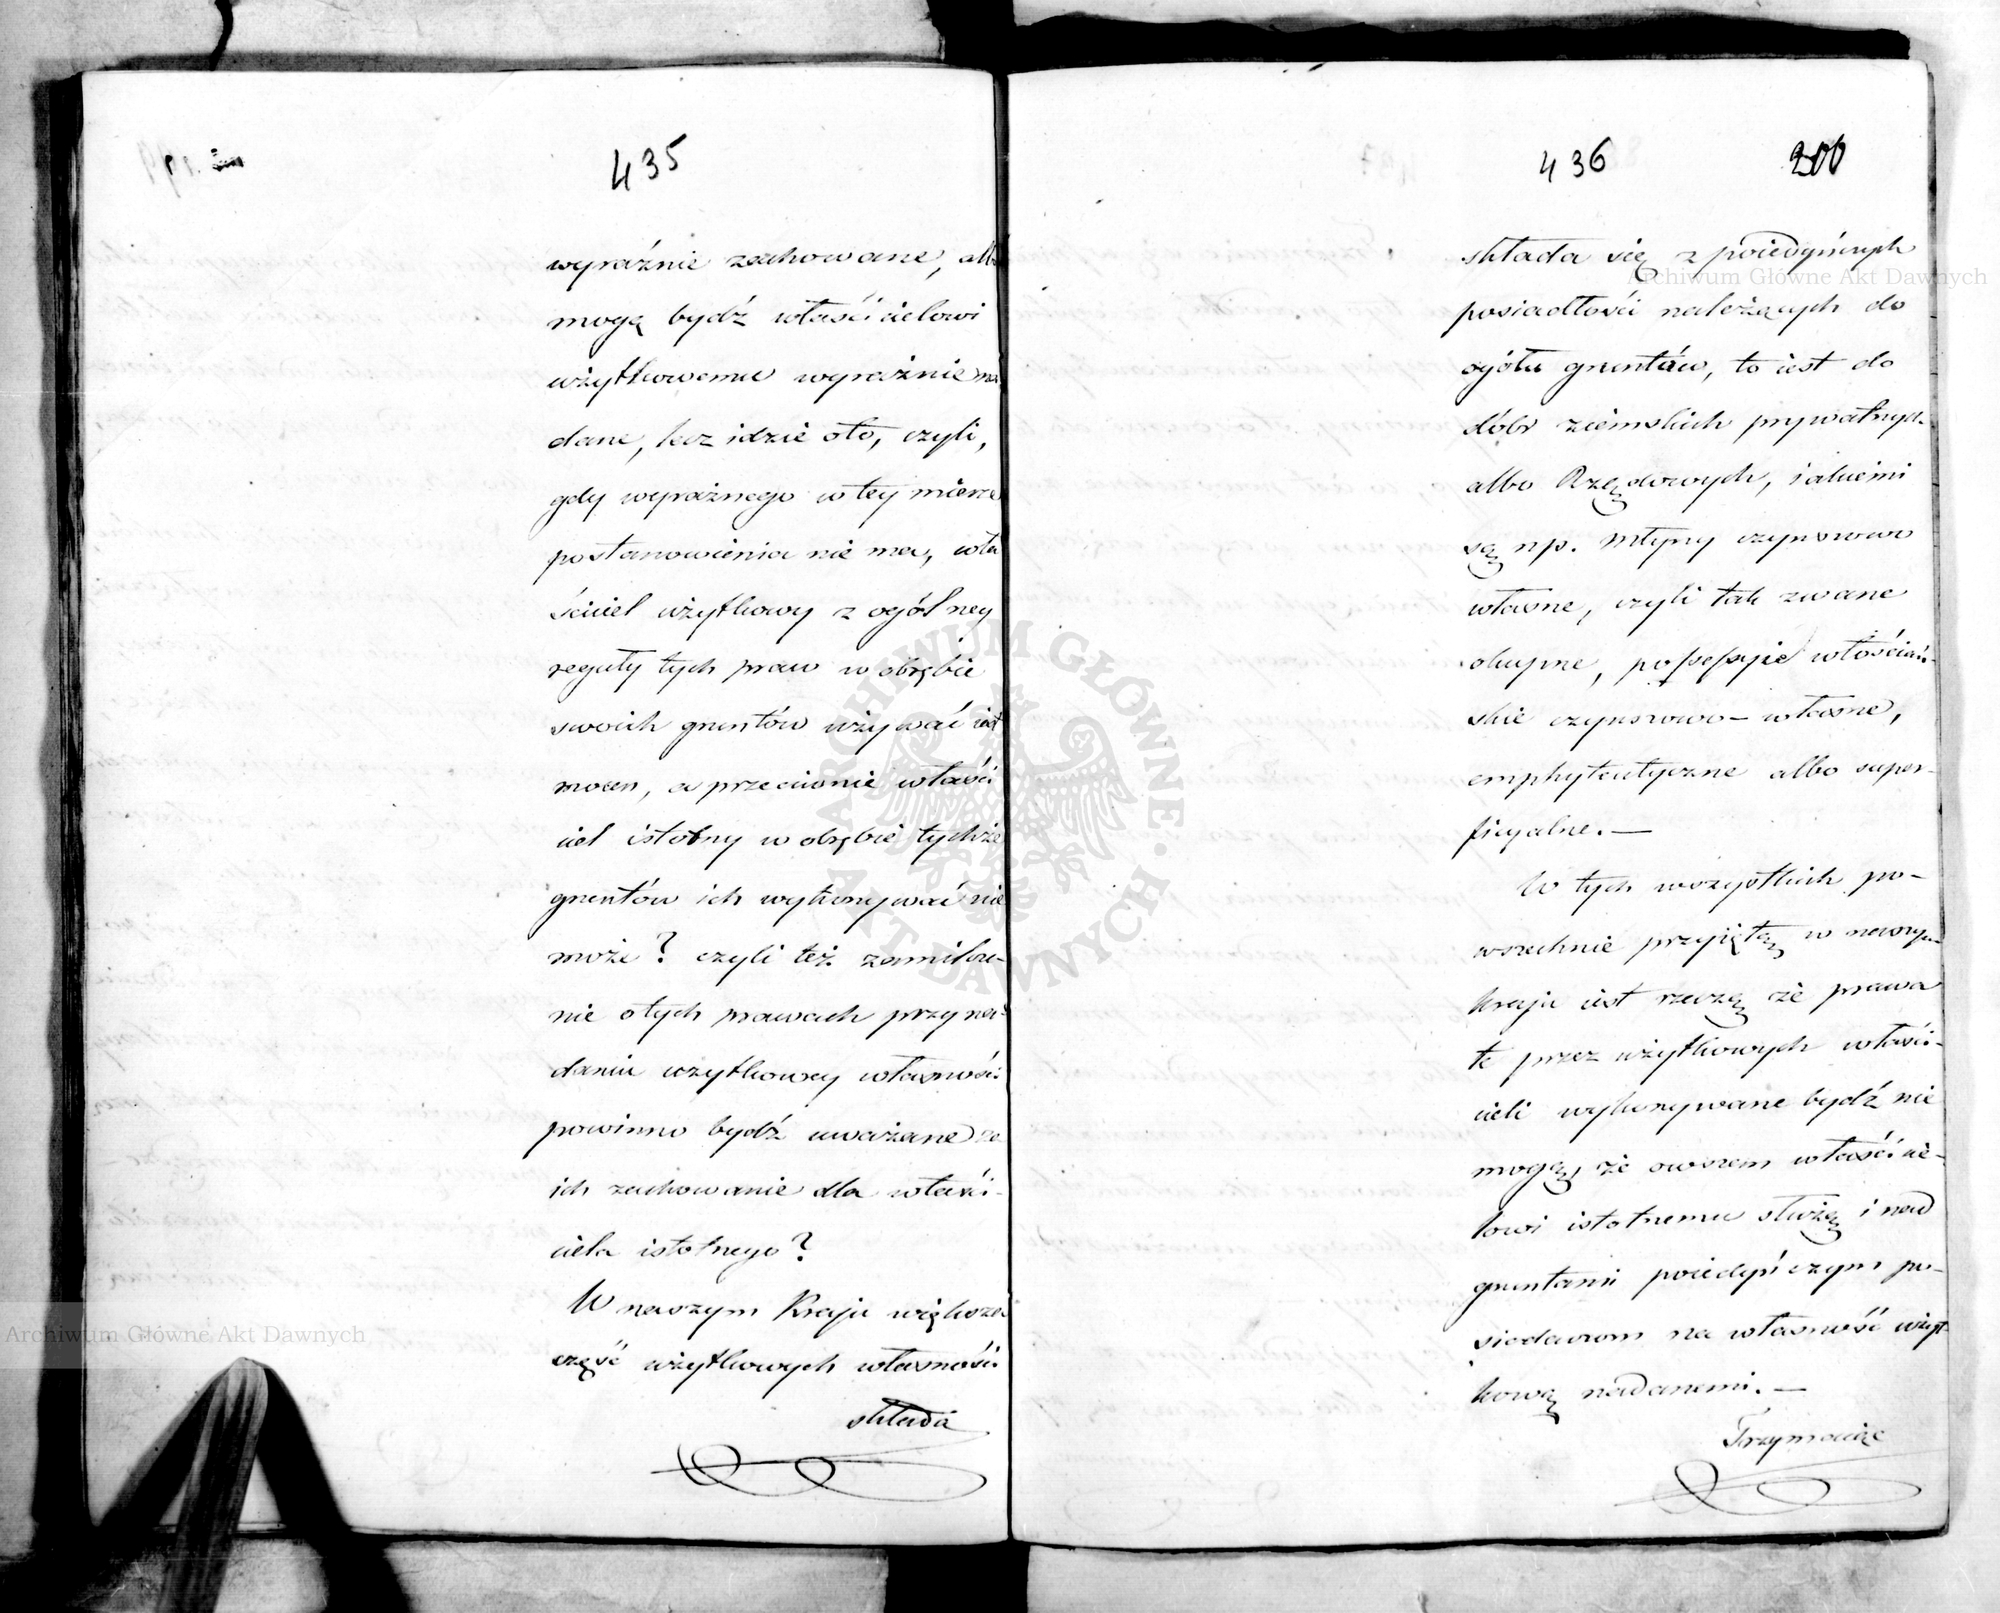 435
wyraźnie zachowane, albo
mogą bydź właścicielowi
użytkowemu wyraźnie na
dane, lecz idzie oto, czyli,
gdy wyraźnego w tey mierze
postanowienia nie ma, wła
ściciel użytkowy z ogólney
reguły tych praw w obrębie
swoich gruntów używać iest
mocen, a przeciwnie właści
ciel istotny w obrębie tychże
gruntów ich wykonywać nie
może? czyli też zamilcze-
nie o tych prawach przy na-
daniu użytkowey własności
powinno bydź uważane za
ich zachowanie dla właści-
ciela istotnego?
W naszym Kraju większa
część użytkowych własności
składa
436 200
składa się z poiedyńczych
posiadłości należących do
ogółu gruntów, to iest do
dóbr ziemskich prywatnych
albo Rządowych, iakiemi
są np. Młyny czynszowo
własne, czyli tak zwane
okupne, possessyie włościań-
skie czynszowo - własne,
emphyteutyczne albo super-
ficyalne. —
W tych wszystkich po-
wszechnie przyiętą w naszym
kraju iest rzeczą że prawa
te przez użytkowych właści-
cieli wykonywane bydź nie
mogą, że owszem właścicie-
lowi istotnemu służą i nad
gruntami poiedyńczym po-
siadaczom na własność użyt-
kową nadanemi. —
Trzymaiąc
Archiwum Główne Akt Dawnych
Archiwum Główne Akt Dawnych
ARCHIWUM GŁÓWNE · AKT DAWNYCH ·